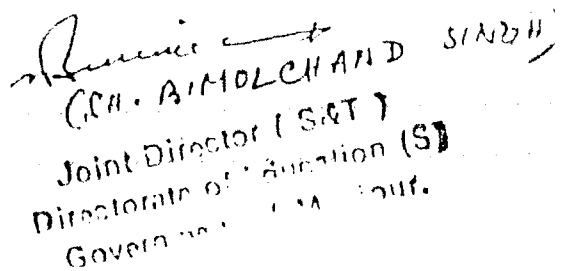 (CH. BIMOLCHAND SINGH)
Joint Director (S&T)
Directorate of Education (S)
Govern